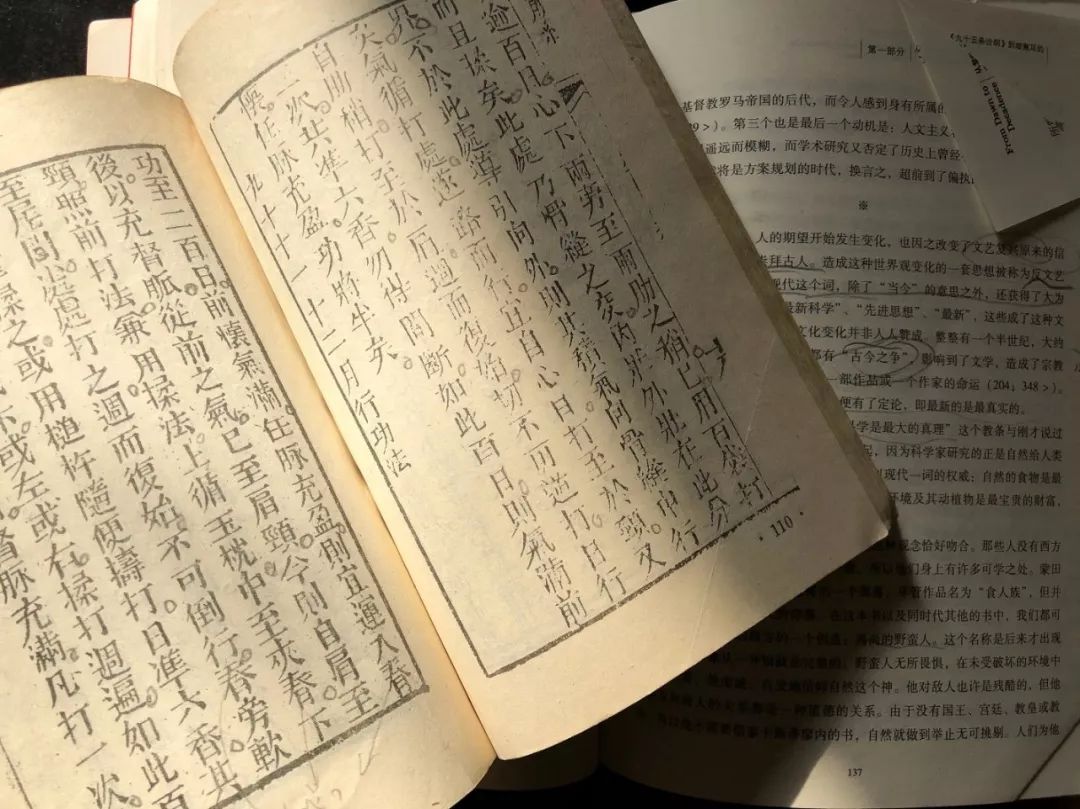 逾百日心下兩旁至兩肋之稍已用石袋打
而且揉矣此處乃骨縫之交內壯外壯在此分
界不於此處導引向外則其積氣向骨縫中行
矣氣循打處逐路而行宜自心口打至於頸又
自肋稍打至於肩週而復始切不可逆打日行
三次共準六香勿得間斷如此百日則氣滿前
懷任脉充盈功將半矣
九十十一十二月行功法
·110·
功至二百日前懷氣滿任脉充盈則宜運入脊
後以充督脈從前之氣已至肩頸今則自肩至
頸照前打法兼用揉法上循玉枕中至夾脊下
至尾閭處處打之週而復始不可倒行脊旁軟
揉之或用槌杵隨便擣打日準六香共
下或左或右揉打週遍如此百
督脈充滿凡打一次
第一部分
From Dawn to
Decadence
基督教罗马帝国的后代,而令人感到身有所属的
第三个也是最后一个动机是:人文主义
遥远而模糊,而学术研究又否定了历史上曾经
将是方案规划的时代,换言之,超前到了偏执
※
人的期望开始发生变化,也因之改变了文艺复兴原来的信
崇拜古人。造成这种世界观变化的一套思想被称为反文艺
现代这个词,除了“当今”的意思之外,还获得了大为
最新科学”、“先进思想”、“最新”,这些成了这种文
文化变化并非人人赞成。整整有一个半世纪,大约
都有“古今之争”,影响到了文学,造成了宗教
一部作品或一个作家的命运(204;348>)。
便有了定论,即最新的是最真实的。
学是最大的真理”这个教条与刚才说过
因为科学家研究的正是自然给人类
现代一词的权威:自然的食物是最
环境及其动植物是最宝贵的财富,
观念恰好吻合。那些人没有西方
所以他们身上有许多可学之处。蒙田
尽管作品名为“食人族”,但并
在这本书以及同时代其他的书中,我们都可
的一个创造:高尚的野蛮人。这个名称是后来才出现
野蛮人无所畏惧,在未受破坏的环境中
自然这个神。他对敌人也许是残酷的,但他
一种道德的关系。由于没有国王、宫廷、教皇或教
的书,自然就做到举止无可挑剔。人们为他
137